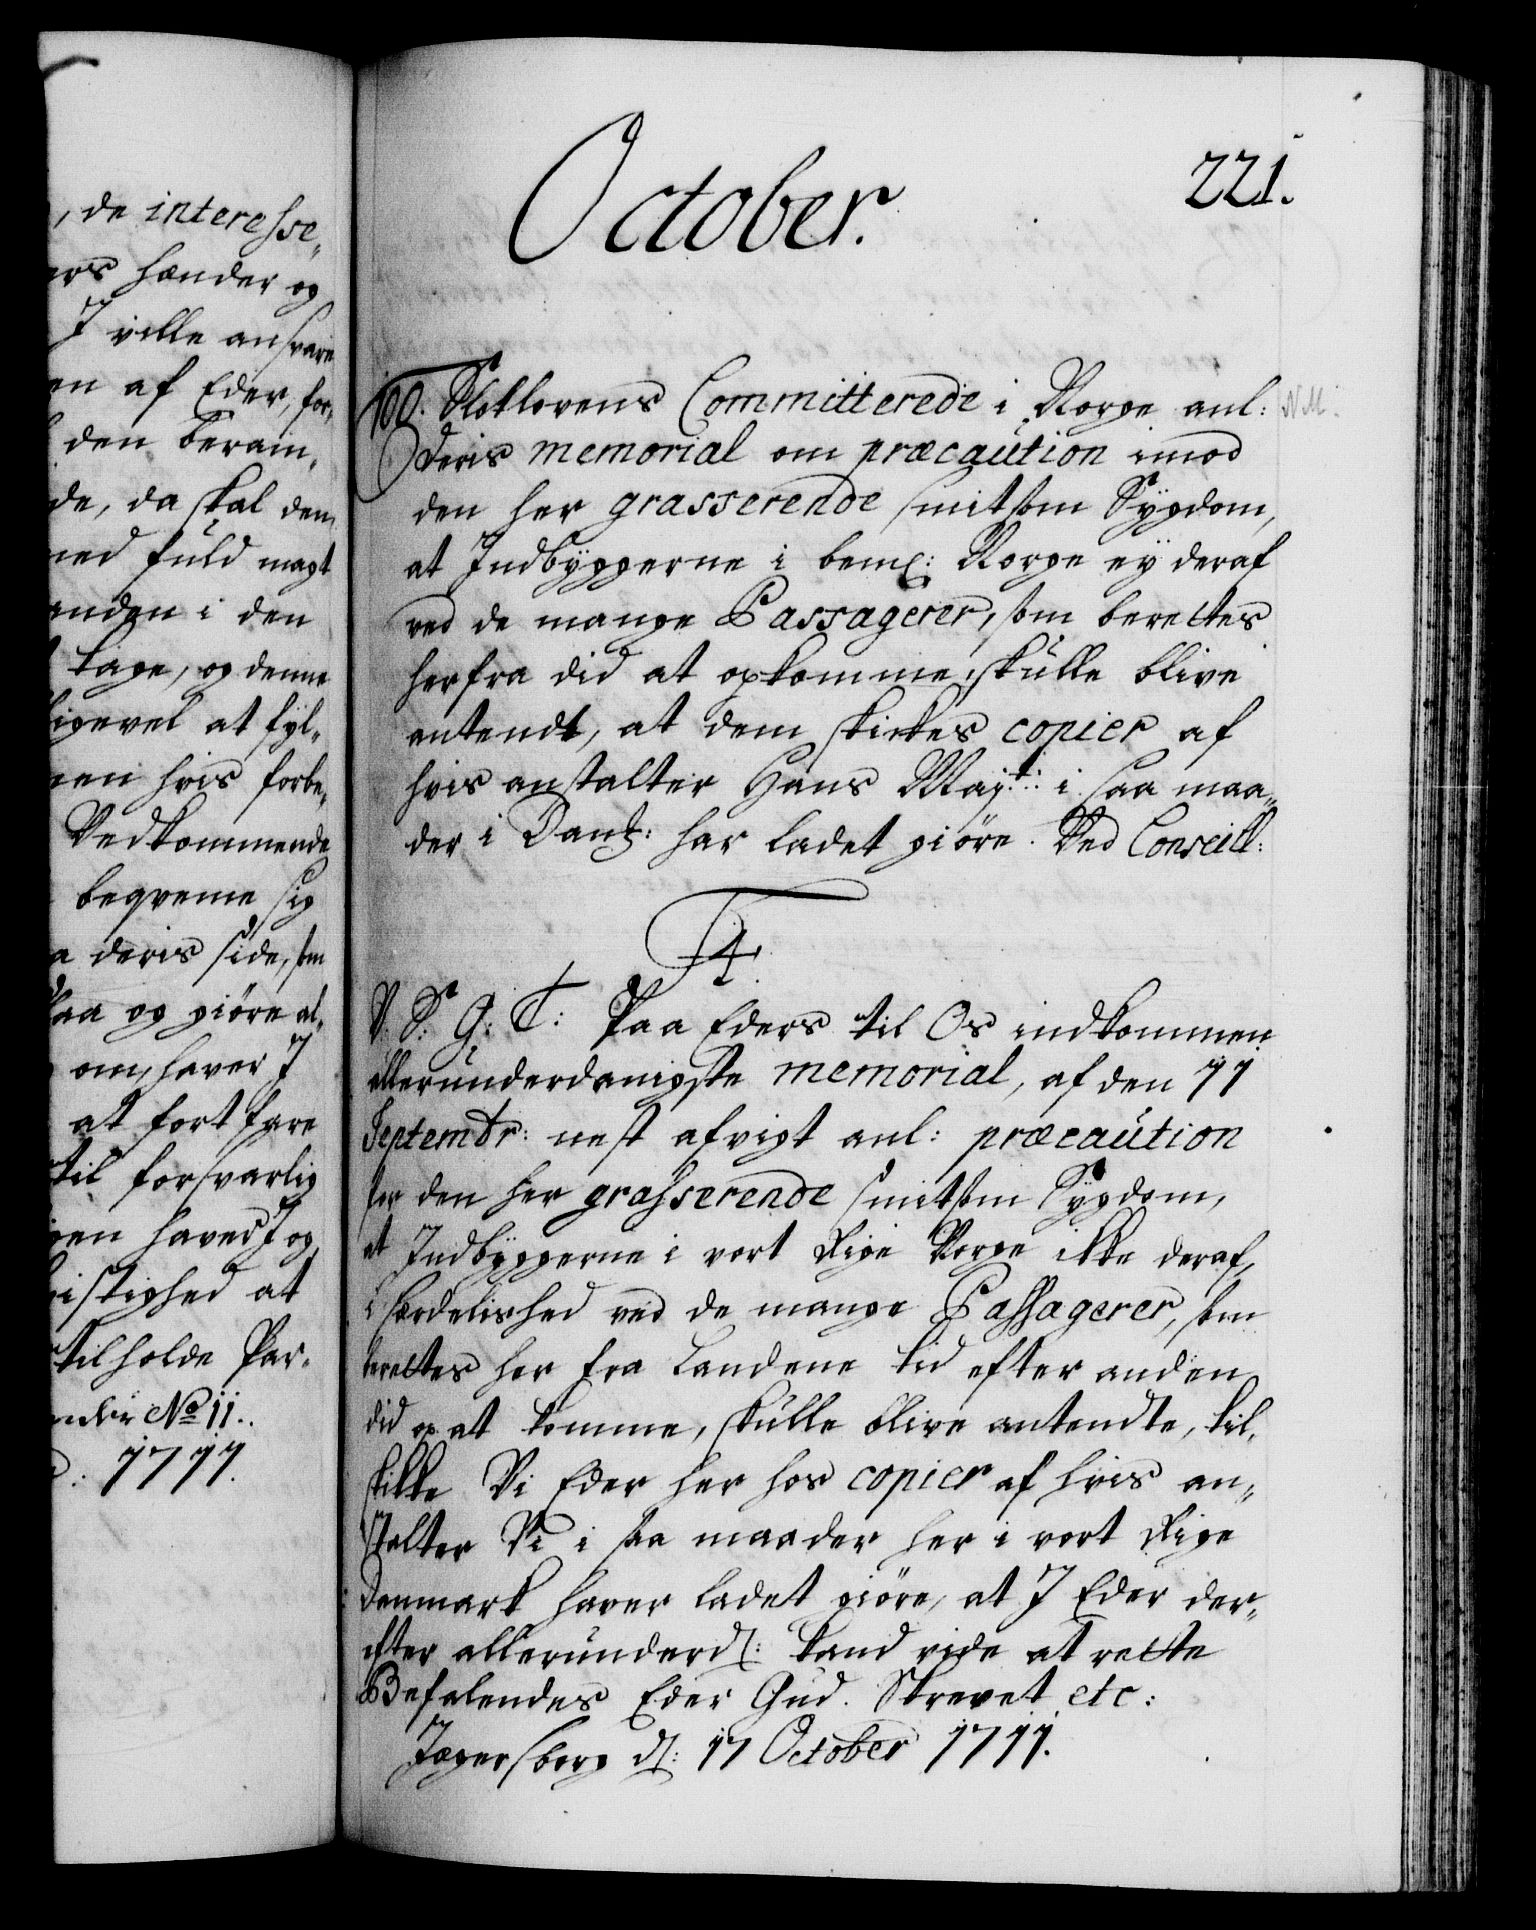 , de interesse„
ers hænder og
J ville ansvare
en af Eder, for„
den beram„
de, da skal dem
med fuld magt
anden i den
tage, og denne
ligevel at fyl„
men hvis forbe„
Vedkommende
beqveme sig
a deris side, som
staa og giöre al„
om, haver J
at fort fare
til forsvarlig
haver J og
at
tilholde Par„
under No 11.
1711.
October.
221.
100. Slotlovens Committerede i Norge anl:
NM.
Deris memorial om præcaution imod
den her grasserende smitsom Sÿgdom,
at Indbÿggerne i bemt: Norge eÿ deraf
ved de mange Passagerer, som berettes
herfra did at opkomme, skulle blive
antendt, at dem skickes copier af
hvis anstalter Hans Majt: i saa maa„
der i Dank: har ladet giöre. Ved Conseill:
F4.
V: S: G: T: Paa Eders til Os indkommen
allerunderdanigste memorial, af den 11
Septembr: nest afvigt anl: præcaution
for den her grasserende smitsom Sÿgdom,
at Indbÿggerne i vort Rige Norge ikke deraf,
i særdelished ved de mange Passagerer, som
berettes her fra Landene tid efter anden
did op at komme, skulle blive antendte, til„
skikke Vi Eder her hos copier af hvis an„
stalter Vi i saa maader her i vort Rige
Danmark haver ladet giöre, at J Eder der„
efter allerunderd: kand vide at rette
Befalendes Eder Gud. Skrevet etc:
Jægersborg d: 17 October 1711.